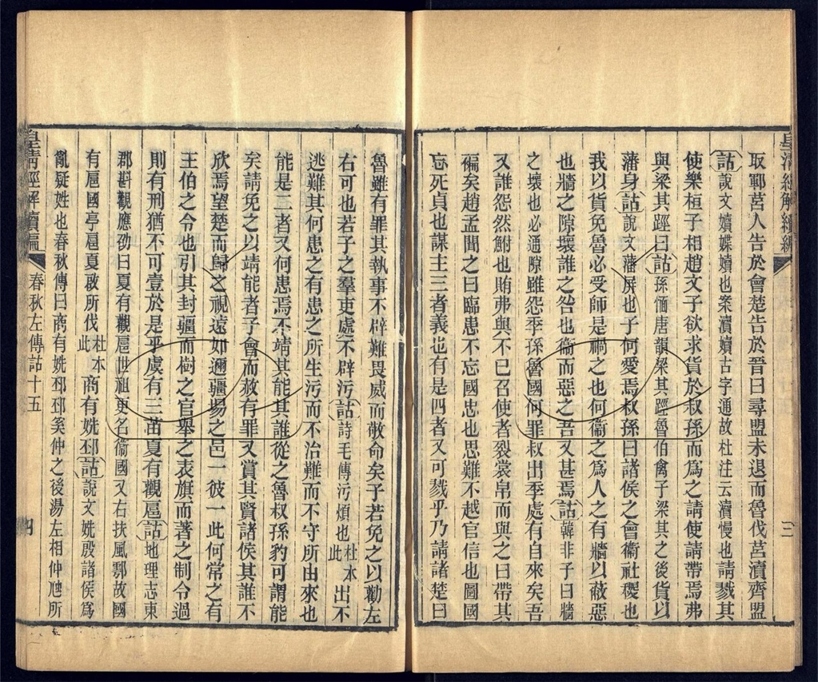 皇清經解續編
三
取鄆莒人告於會楚告於晉曰尋盟未退而魯伐莒瀆齊盟
詁說文嬻媟嬻也案瀆嬻古字通故杜注云瀆慢也請戮其
使樂桓子相趙文子欲求貨於叔孫而爲之請使請帶焉弗
與梁其踁曰詁孫愐唐韻梁其踁魯伯禽子梁其之後貨以
藩身詁說文藩屏也子何愛焉叔孫曰諸侯之會衞社稷也
我以貨免魯必受師是禍之也何衞之爲人之有牆以蔽惡
也牆之隙壞誰之咎也衞而惡之吾又甚焉詁韓非子曰牆
之壞也必通隙雖怨季孫魯國何罪叔出季處有自來矣吾
又誰怨然鮒也賄弗與不已召使者裂裳帛而與之曰帶其
褊矣趙孟聞之曰臨患不忘國忠也思難不越官信也圖國
忘死貞也謀主三者義也有是四者又可戮乎乃請諸楚曰
魯雖有罪其執事不辟難畏威而敬命矣子若免之以勸左
右可也若子之羣吏處不辟污詁詩毛傳污煩也杜本此出不
逃難其何患之有患之所生污而不治難而不守所由來也
能是二者又何患焉不靖其能其誰從之魯叔孫豹可謂能
矣請免之以靖能者子會而赦有罪又賞其賢諸侯其誰不
欣焉望楚而歸之視遠如邇疆埸之邑一彼一此何常之有
王伯之令也引其封疆而樹之官舉之表旗而著之制令過
則有刑猶不可壹於是乎虞有三苗夏有觀扈詁地理志東
郡畔觀應劭曰夏有觀扈世祖更名衞國又右扶風鄠故國
有扈國亭扈夏啟所伐杜本此商有姺邳詁說文姺殷諸侯爲
亂疑姓也春秋傳曰商有姺邳邳奚仲之後湯左相仲虺所
皇清經解續編
春秋左傳詁十五
四